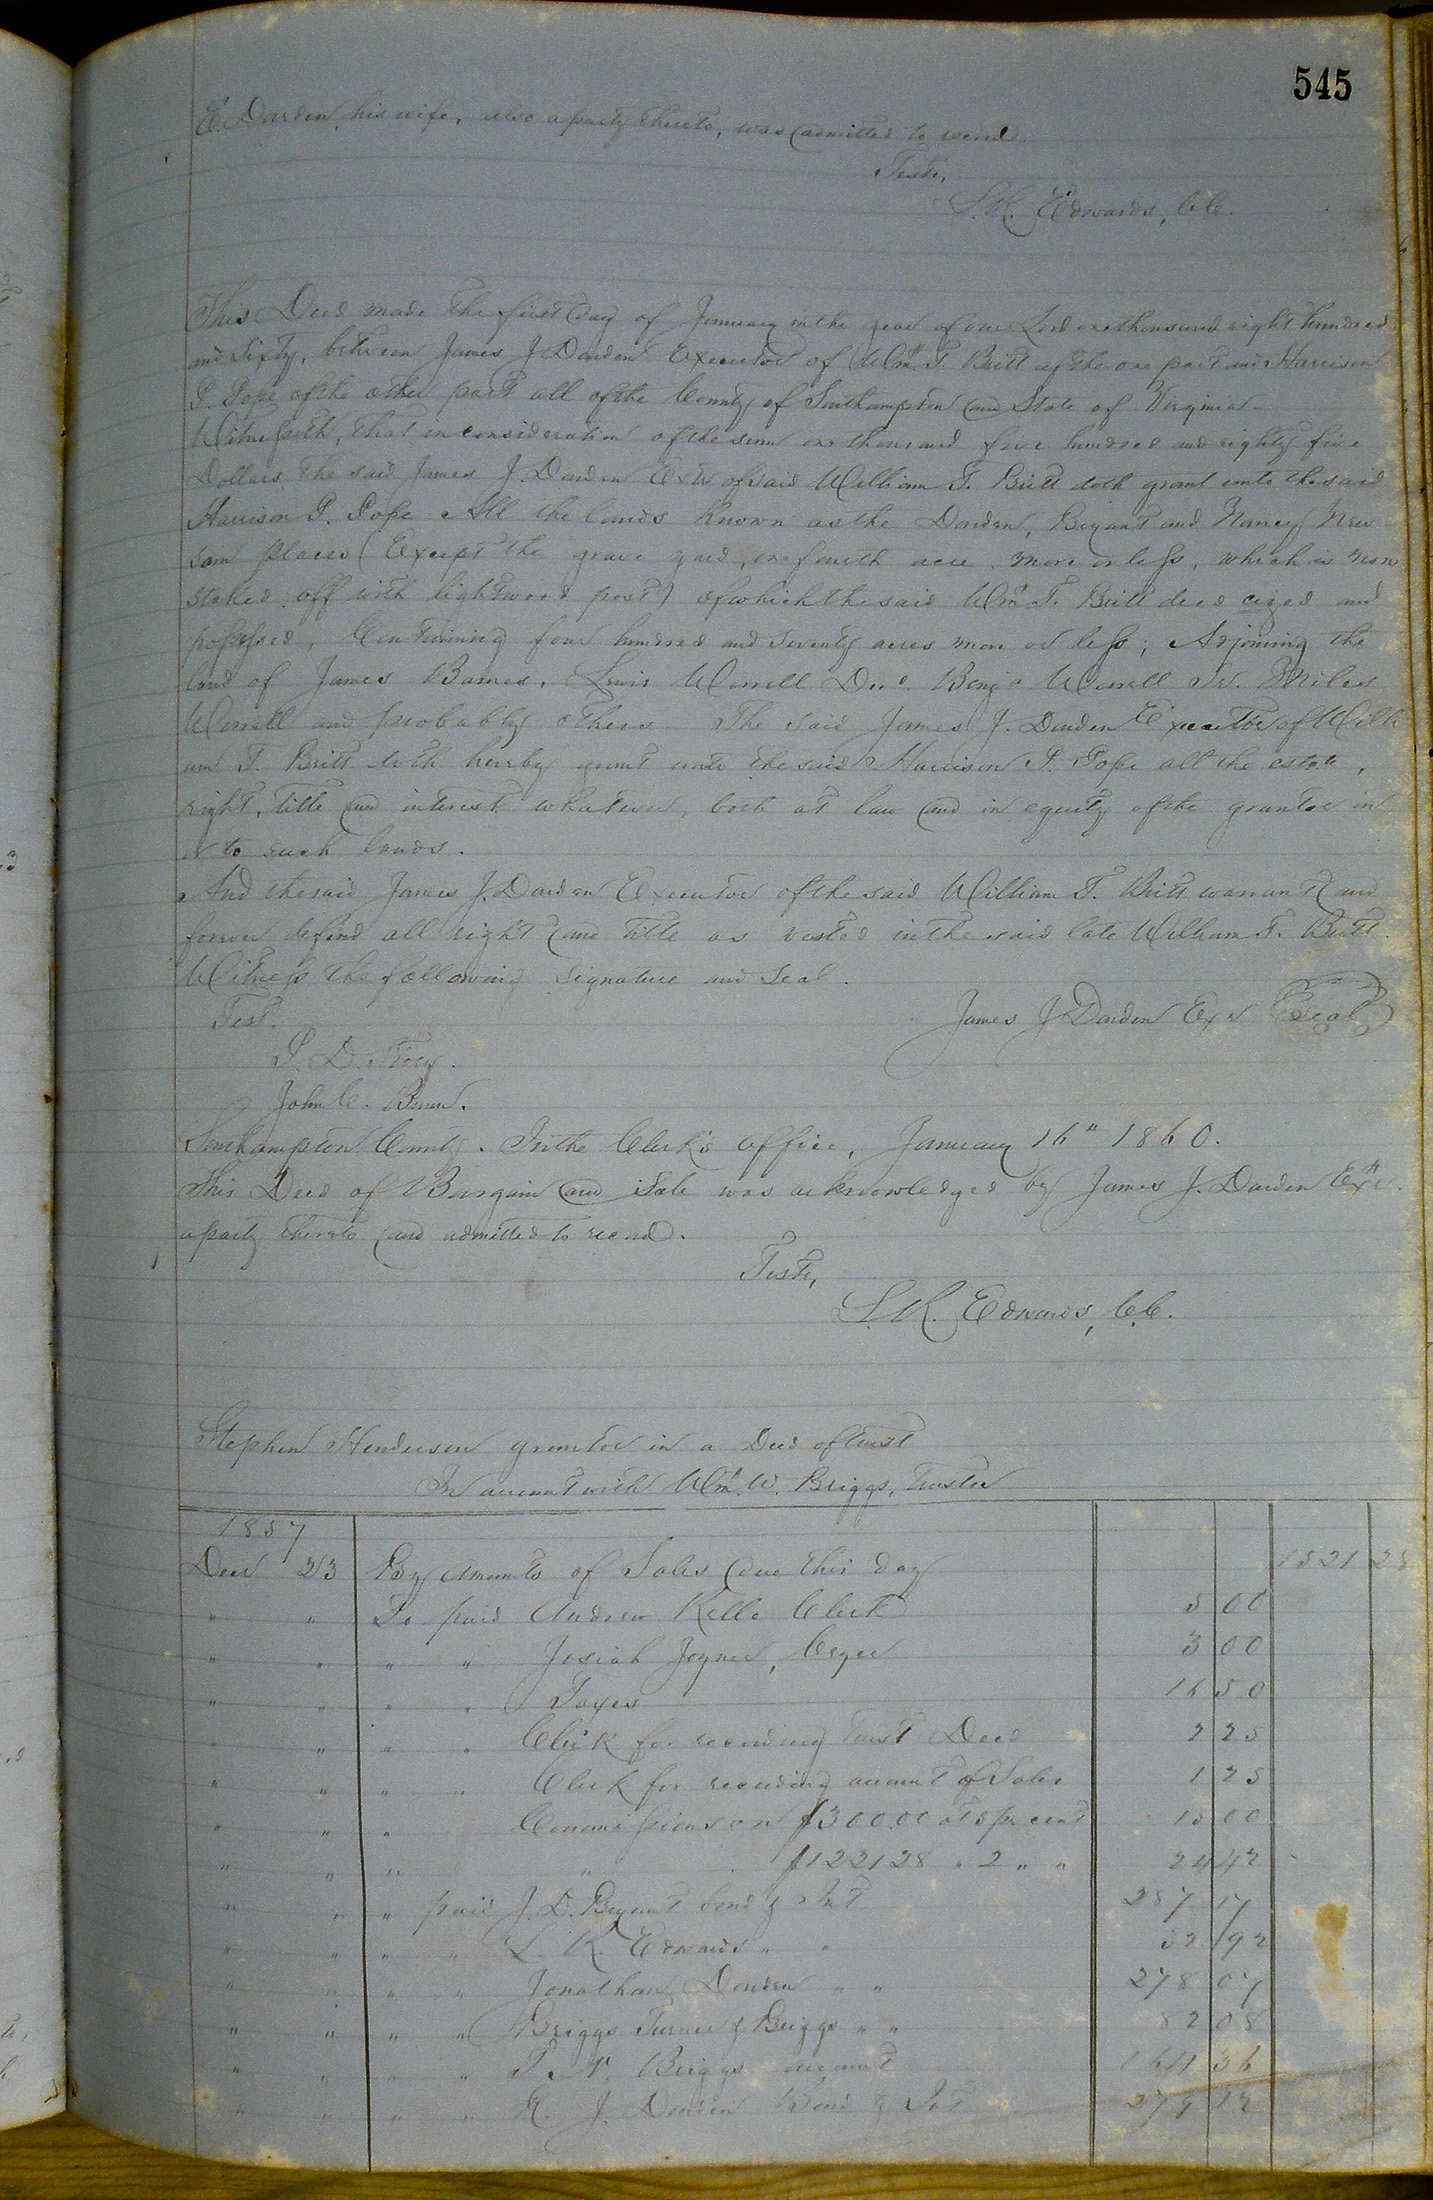 545
E. Darden, his wife, also a party thereto, was admitted to record.
Teste,
L.R. Edwards, C.C.
This Deed made the first day of January in the year of our Lord one thousand eight hundred
and Sixty, between James J Darden Executor of Wm. T. Britt of the one part and Harrison
P. Pope of the other part all of the County of Southampton and State of Virginia
Witnesseth, that in consideration of the sum one thousand five hundred and eighty five
Dollars, the said James J. Darden Exr of said William T. Britt doth grant unto the said
Harrison P. Pope All the lands known as the Darden, Bryant and Nancy New-
som places (Except the grave yard, one fourth acre more or less, which is now
staked off with lightwood post) of which the said Wm. T. Britt died cized and
possessed, Containing four hundred and seventy acres more or less; Adjoining the
land of James Barnes, Lewis Worrell Decd. Benja Worrell Sr. Miles
Worrell and probably others The said James J. Darden Executor of Willi
am T. Britt doth hereby grant unto the said Harrison P. Pope all the estate,
right, title and interest whatever, both at law and in equity of the grantor in
or to such lands.
And the said James J. Darden Executor of the said William T. Britt warrant and
forever defend all right and title as vested in the said late William T. Britt.
Witness the following signature and seal.
Test. James J Darden Exr Seal
John C. Bunn.
Southampton County. In the Clerk's office, January 16" 1860.
This Deed of Bargain and Sale was acknowledged by James J. Darden Exr.
a party thereto and admitted to record.
Teste,
L.R. Edwards, C.C.
Stephen Henderson grantor in a Deed of trust
In account with Wm. W. Briggs, Trustee
1857
Decr 23 By amounts of Sales due this day 1521 28
" " To paid Andrew Kello Clerk 5 00
" " " " Josiah Joyner, Cryer 3 00
" " " " Taxes 16 50
" " " " Clerk for recording trust Deed 2 25
" " " " Clerk for recording account of Sales 1 25
" " " Commissions on $300.00 at 5 pr cent 15 00
" " " " $1221 28 " 2 " " 24 42
" " " paid J. D. Bryant bond & Int 257 17
" " " " L. R. Edwards " " 52 92
" " " " Jonathan Darden " " 278 07
" " " " Briggs Turner & Briggs " " 82 08
" " " " Briggs account 164 36
" " " " J. Darden Bond & Int 279 12